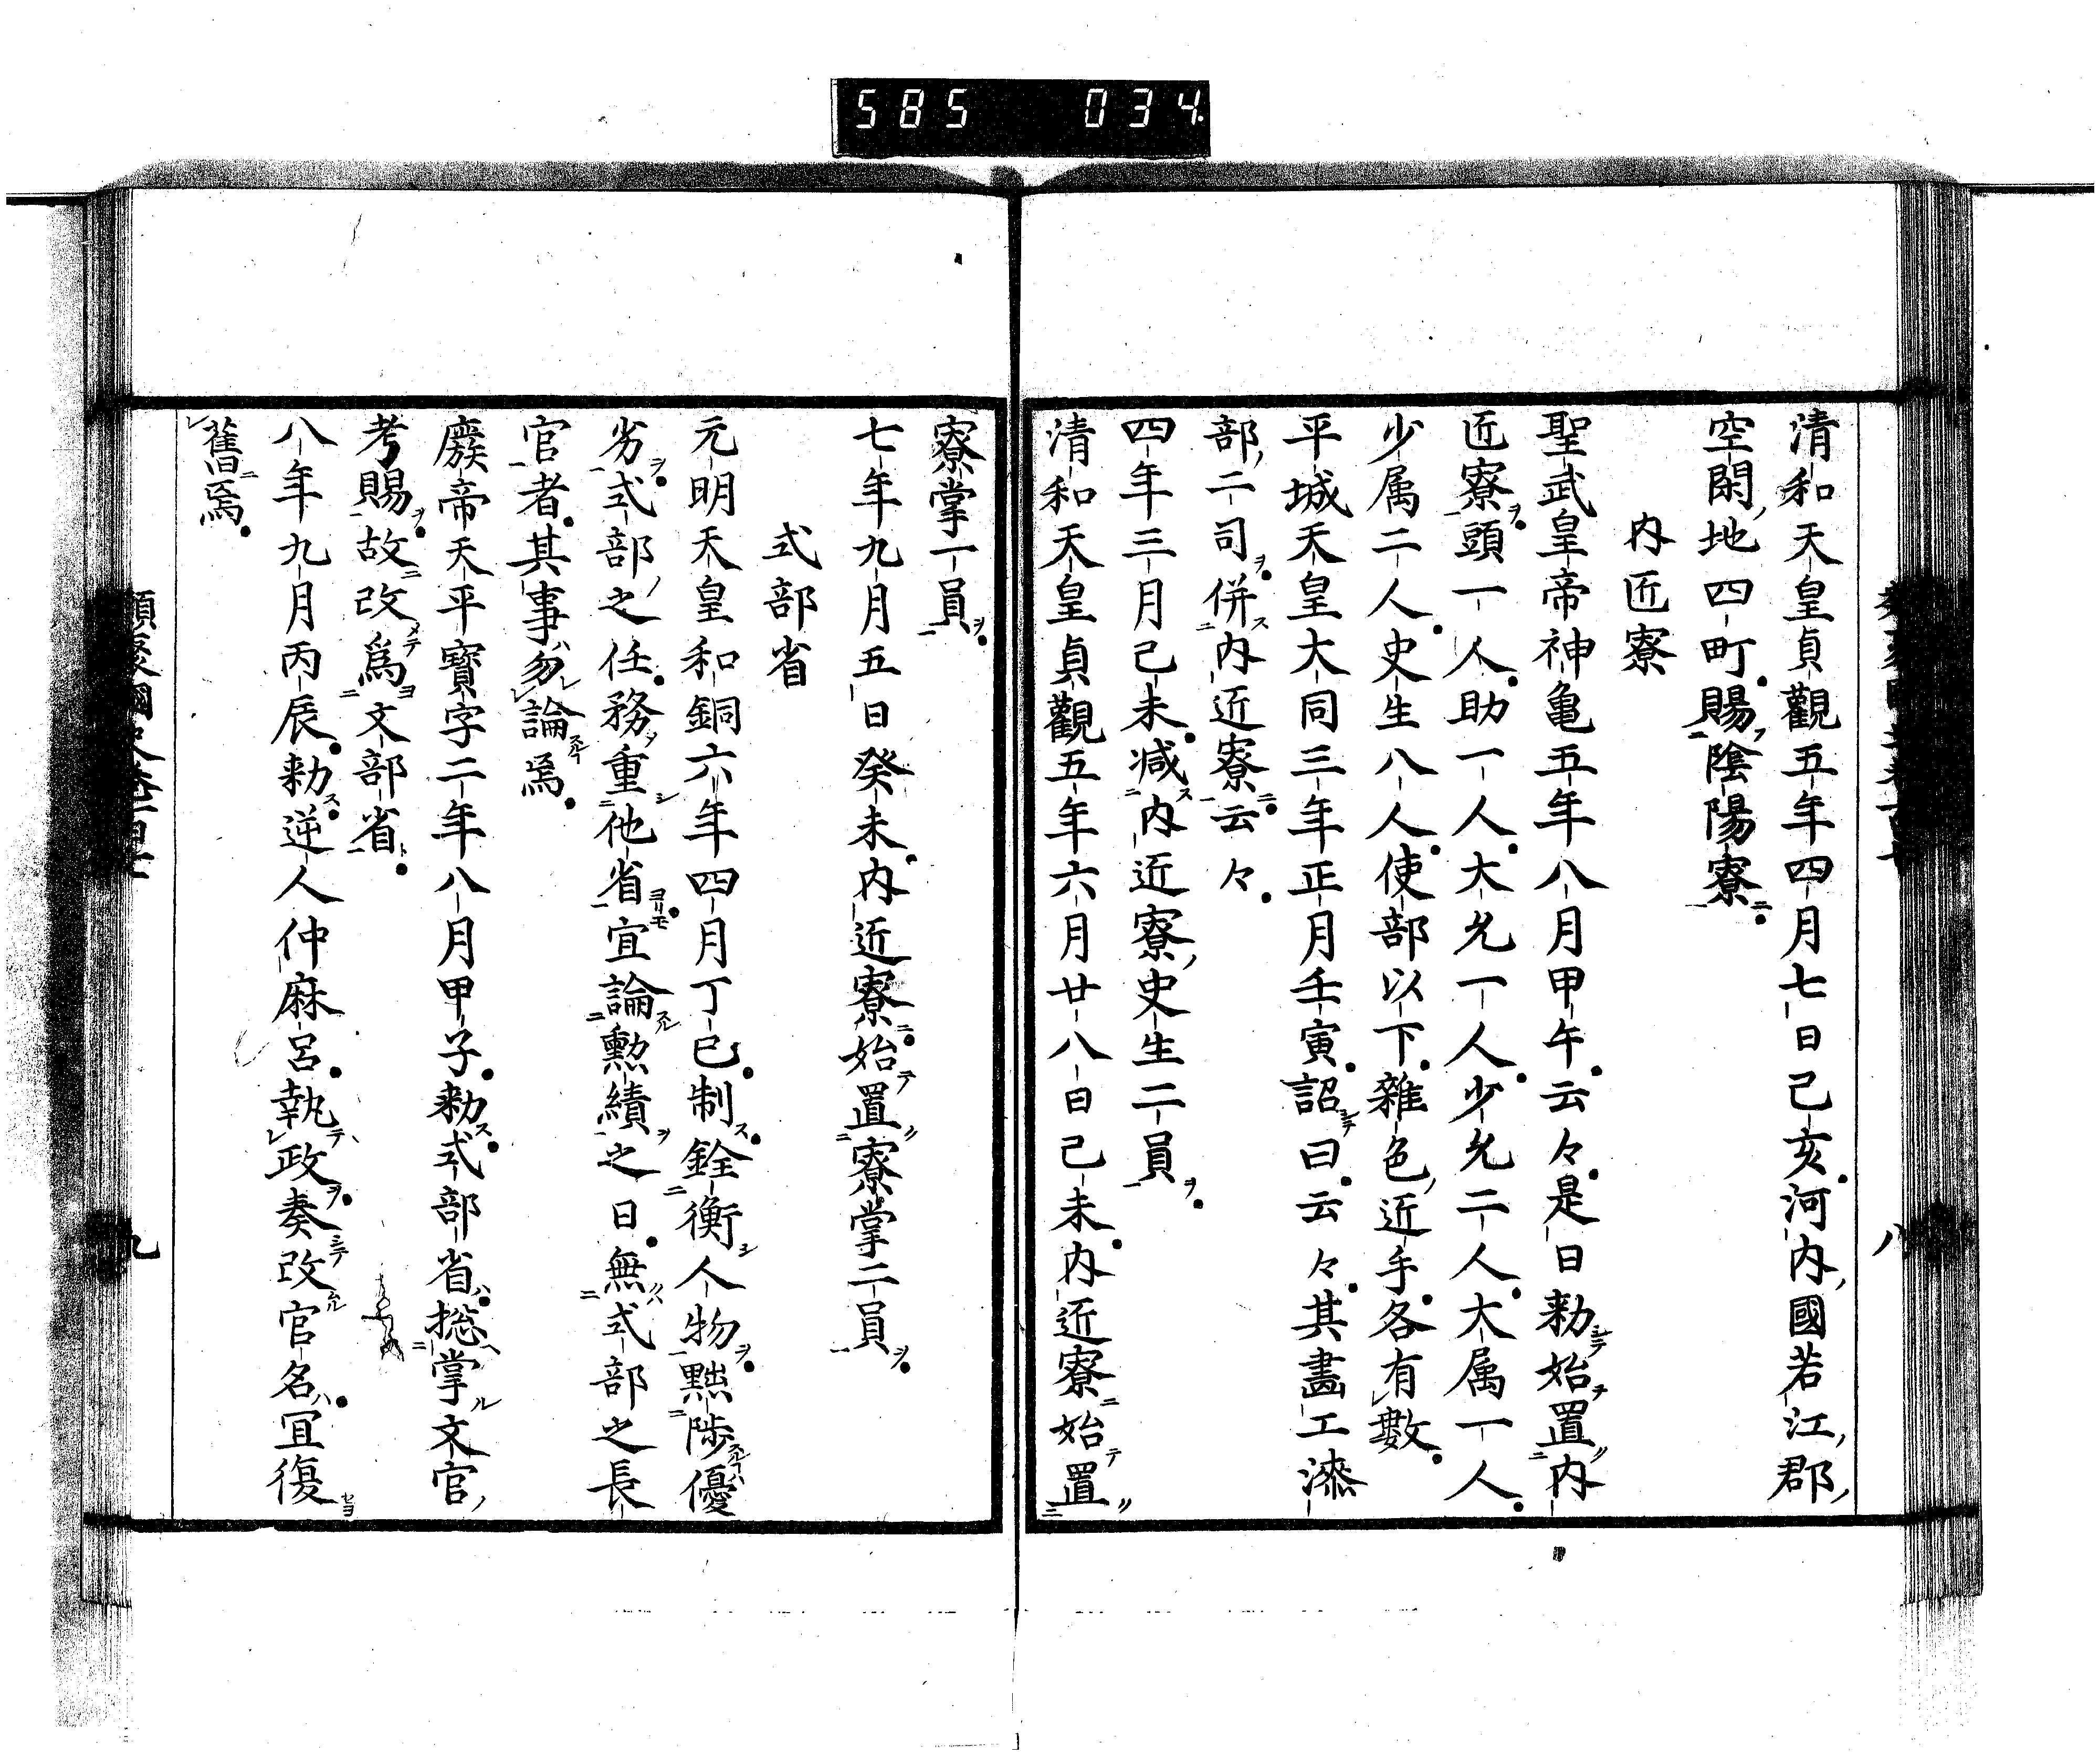 585 034
清和天皇貞觀五年四月七日己亥河内國若江郡
空閑地四町賜陰陽寮
内匠寮
聖武皇帝神亀五年八月甲午云々是日勅始置内
匠寮頭一人助一人大允一人少允二人大属一人
少属二人史生八人使部以下雜色近手各有數
平城天皇大同三年正月壬寅詔曰云々其畫工漆
部二司併内近寮云々
四年三月己未减内近寮史生二員
清和天皇貞觀五年六月廿八日己未内近寮始置
寮掌一員
七年九月五日癸未内近寮始置寮掌二員
式部省
元明天皇和銅六年四月丁巳制銓衡人物黜陟優
劣式部之任務重他省宜論勲績之日無式部之長
官者其事勿論焉
廢帝天平寶字二年八月甲子勅式部省揔掌文官
考賜故改爲文部省
八年九月丙辰勅逆人仲麻呂執政奏改官名宜復
舊焉